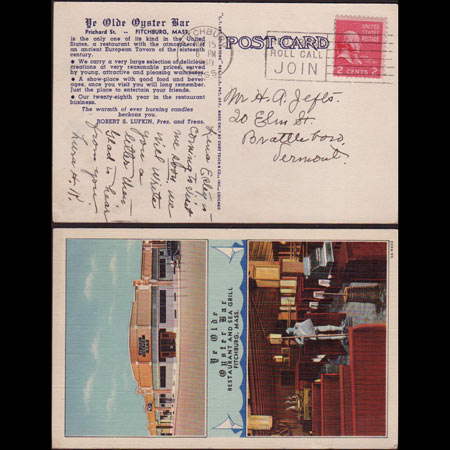 Ye Olde Oyster Bar
Prichard St. - FITCHBURG, MASS.
is the only one of its kind in the United
States, a restaurant with the atmosphere of
an ancient European Tavern of the sixteenth
century.
• We carry a very large selection of delicious
creations at very reasonable prices, served
by young, attractive and pleasing waitresses.
• A show-place with good food and bever-
ages, once you visit you will long remember.
Just the place to entertain your friends.
• Our twenty-eight year in the restaurant
business.
The warmth of ever burning candles
beckons you.
ROBERT S. LUFKIN, Pres. and Treas.
POST CARD
ROLL CALL
JOIN
2 CENTS 2
Mr. H. A.
20 Elm St.
Brattleboro,
Vermont.
is
coming to visit
me soon, we
will write
you a
letter then
Glad to hear
from you
Ye Olde
Oyster Bar
RESTAURANT AND SEA GRILL
FITCHBURG, MASS.